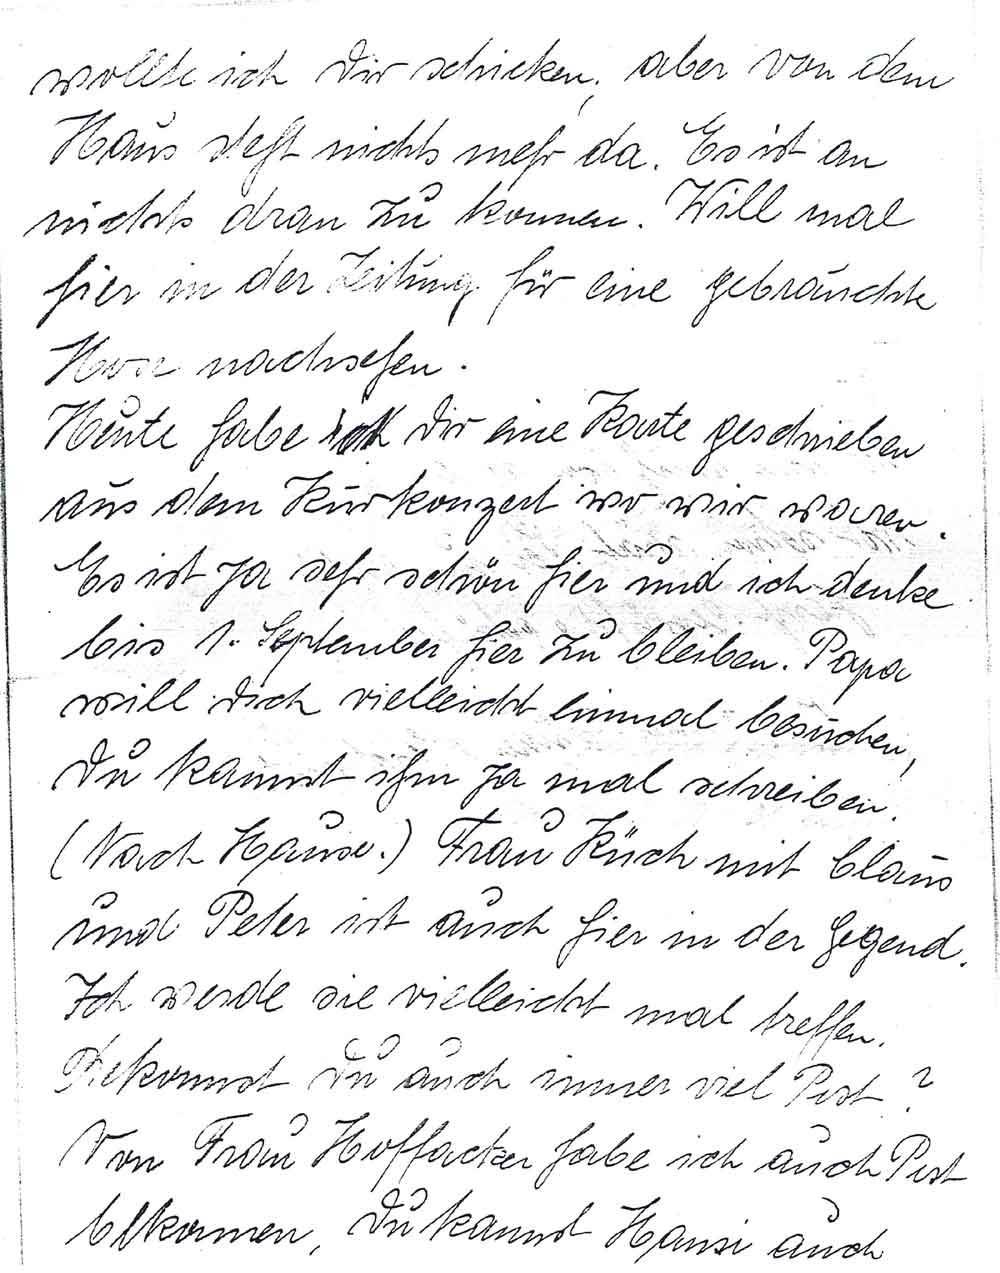 wollte ich Dir schicken, aber von dem
Haus steht nichts mehr da. Es ist an
nichts dran zu kommen. Will mal
hier in der Zeitung für eine gebrauchte
Hose nachsehen.
Heute habe ich Dir eine Karte geschrieben
aus dem Kurkonzert wo wir waren.
Es ist ja sehr schön hier und ich denke
bis 1. September hier zu bleiben. Papa
will Dich vielleicht einmal besuchen,
Du kannst ihm ja mal schreiben.
(Nach Hause.) Frau Küch mit Claus
und Peter ist auch hier in der Gegend.
Ich werde sie vielleicht mal treffen.
Bekommst Du auch immer viel Post?
Von Frau Hoffacker habe ich auch Post
bekommen, Du kannst Hansi auch